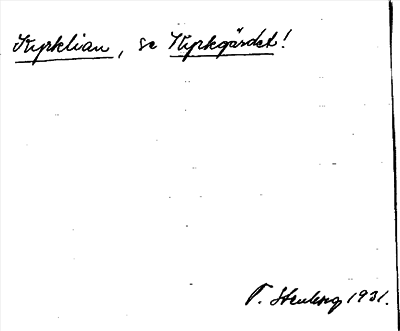 Kyrklian, se Kyrkgärdet!
P. Stenberg 1931.